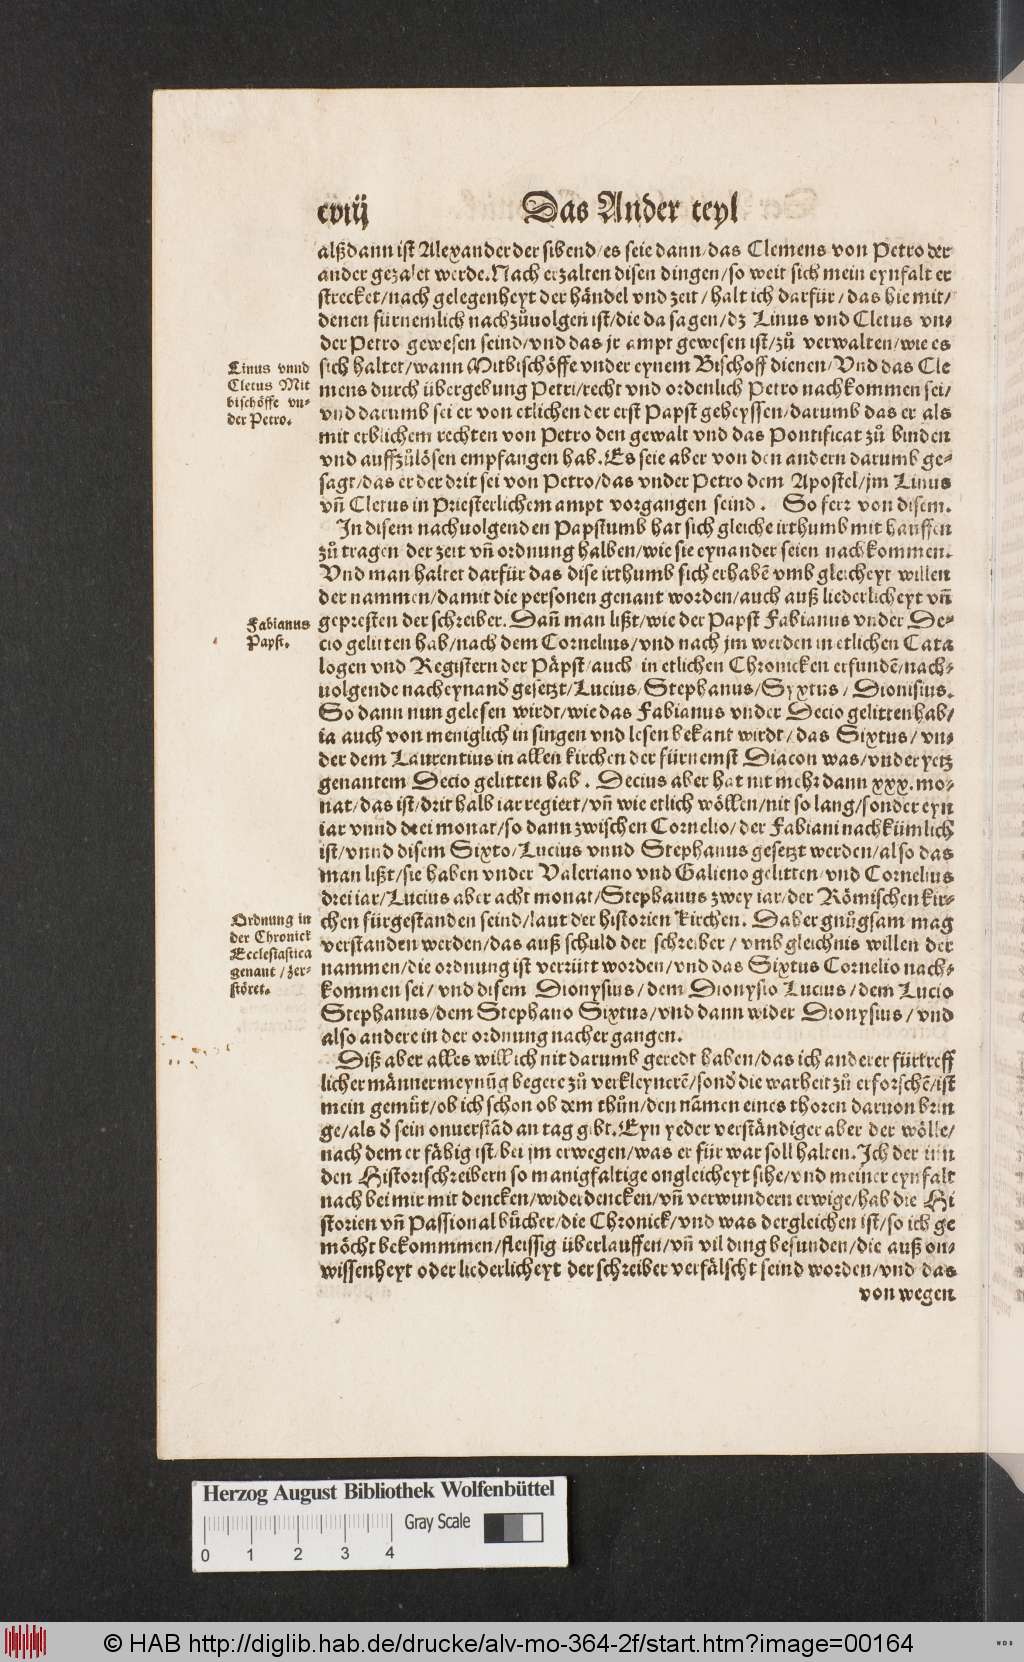 cviij
Das Ander teyl
alßdann ist Alexander der sibend/es seie dann/das Clemens von Petro der
ander gezalet werde. Nach erzalten disen dingen/so weit sich mein eynfalt er
strecket/nach gelegenheyt der händel vnd zeit/halt ich darfür/das hie mit/
denen fürnemlich nachzůuolgen ist/die da sagen/dz Linus vnd Cletus vn⸗
der Petro gewesen seind/vnd das jr ampt gewesen ist/zů verwalten/wie es
sich haltet/wann Mitbischöffe vnder eynem Bischoff dienen/Vnd das Cle
mens durch übergebung Petri/recht vnd ordenlich Petro nachkommen sei/
vnd darumb sei er von etlichen der erst Papst geheyssen/darumb das er als
mit erblichem rechten von Petro den gewalt vnd das Pontificat zů binden
vnd auffzůlösen empfangen hab. Es seie aber von den andern darumb ge⸗
sagt/das er der drit sei von Petro/das vnder Petro dem Apostel/jm Linus
vñ Cletus in Priesterlichem ampt vorgangen seind. So ferr von disem.
In disem nachuolgenden Papstumb hat sich gleiche irthumb mit hauffen
zů tragen der zeit vñ ordnung halben/wie sie eynander seien nachkommen.
Vnd man haltet darfür das dise irthumb sich erhabē vmb gleicheyt willen
der nammen/damit die personen genant worden/auch auß liederlicheyt vñ
gepresten der schreiber. Dañ man lißt/wie der Papst Fabianus vnder De⸗
cio gelitten hab/nach dem Cornelius/vnd nach jm werden in etlichen Cata
logen vnd Registern der Päpst/auch in etlichen Chronicken erfundē/nach⸗
uolgende nacheynand̛ gesetzt/Lucius/Stephanus/Syxtus/Dionisius.
So dann nun gelesen wirdt/wie das Fabianus vnder Decio gelitten hab/
ia auch von meniglich in singen vnd lesen bekant wirdt/das Sixtus/vn⸗
der dem Laurentius in allen kirchen der fürnemst Diacon was/vnder yetz
genantem Decio gelitten hab. Decius aber hat nit mehr dann xxx. mo⸗
nat/das ist/drit halb iar regiert/vñ wie etlich wöllen/nit so lang/sonder eyn
iar vnnd drei monat/so dann zwischen Cornelio/der Fabiani nachkümlich
ist/vnnd disem Sixto/Lucius vnnd Stephanus gesetzt werden/also das
man lißt/sie haben vnder Valeriano vnd Galieno gelitten/vnd Cornelius
drei iar/Lucius aber acht monat/Stephanus zwey iar/der Römischen kir⸗
chen fürgestanden seind/laut der historien kirchen. Daher gnůgsam mag
verstanden werden/das auß schuld der schreiber/vmb gleichnis willen der
nammen/die ordnung ist verrütt worden/vnd das Sixtus Cornelio nach⸗
kommen sei/vnd disem Dionysius/dem Dionysio Lucius/dem Lucio
Stephanus/dem Stephano Sixtus/vnd dann wider Dionysius/vnd
also andere in der ordnung nacher gangen.
Diß aber alles will ich nit darumb geredt haben/das ich anderer fürtreff
licher männer meynūg begere zů verkleynerē/sond̛ die warheit zů erforschē/ist
mein gemüt/ob ich schon ob dem thůn/den nāmen eines thoren daruon brin
ge/als d̛ sein onuerstād an tag gibt. Eyn yeder verständiger aber der wölle/
nach dem er fähig ist/bei jm erwegen/was er für war soll halten. Ich der inn
den Historischreibern so manigfaltige ongleicheyt sihe/vnd meiner eynfalt
nach bei mir mit dencken/widerdencken/vñ verwundern erwige/hab die Hi
storien vñ Passional bücher/die Chronick/vnd was dergleichen ist/so ich ge
möcht bekommmen/fleissig überlauffen/vñ vil ding befunden/die auß on⸗
wissenheyt oder liederlicheyt der schreiber verfälscht seind worden/vnd das
von wegen
Linus vnnd
Cletus Mit
bischöffe vn⸗
der Petro.
Fabianus
Papst.
Ordnung in
der Chronick
Ecclesiastica
genant/zer⸗
störet.
Herzog August Bibliothek Wolfenbüttel
Gray Scale
0 1 2 3 4
© HAB http://diglib.hab.de/drucke/alv-mo-364-2f/start.htm?image=00164